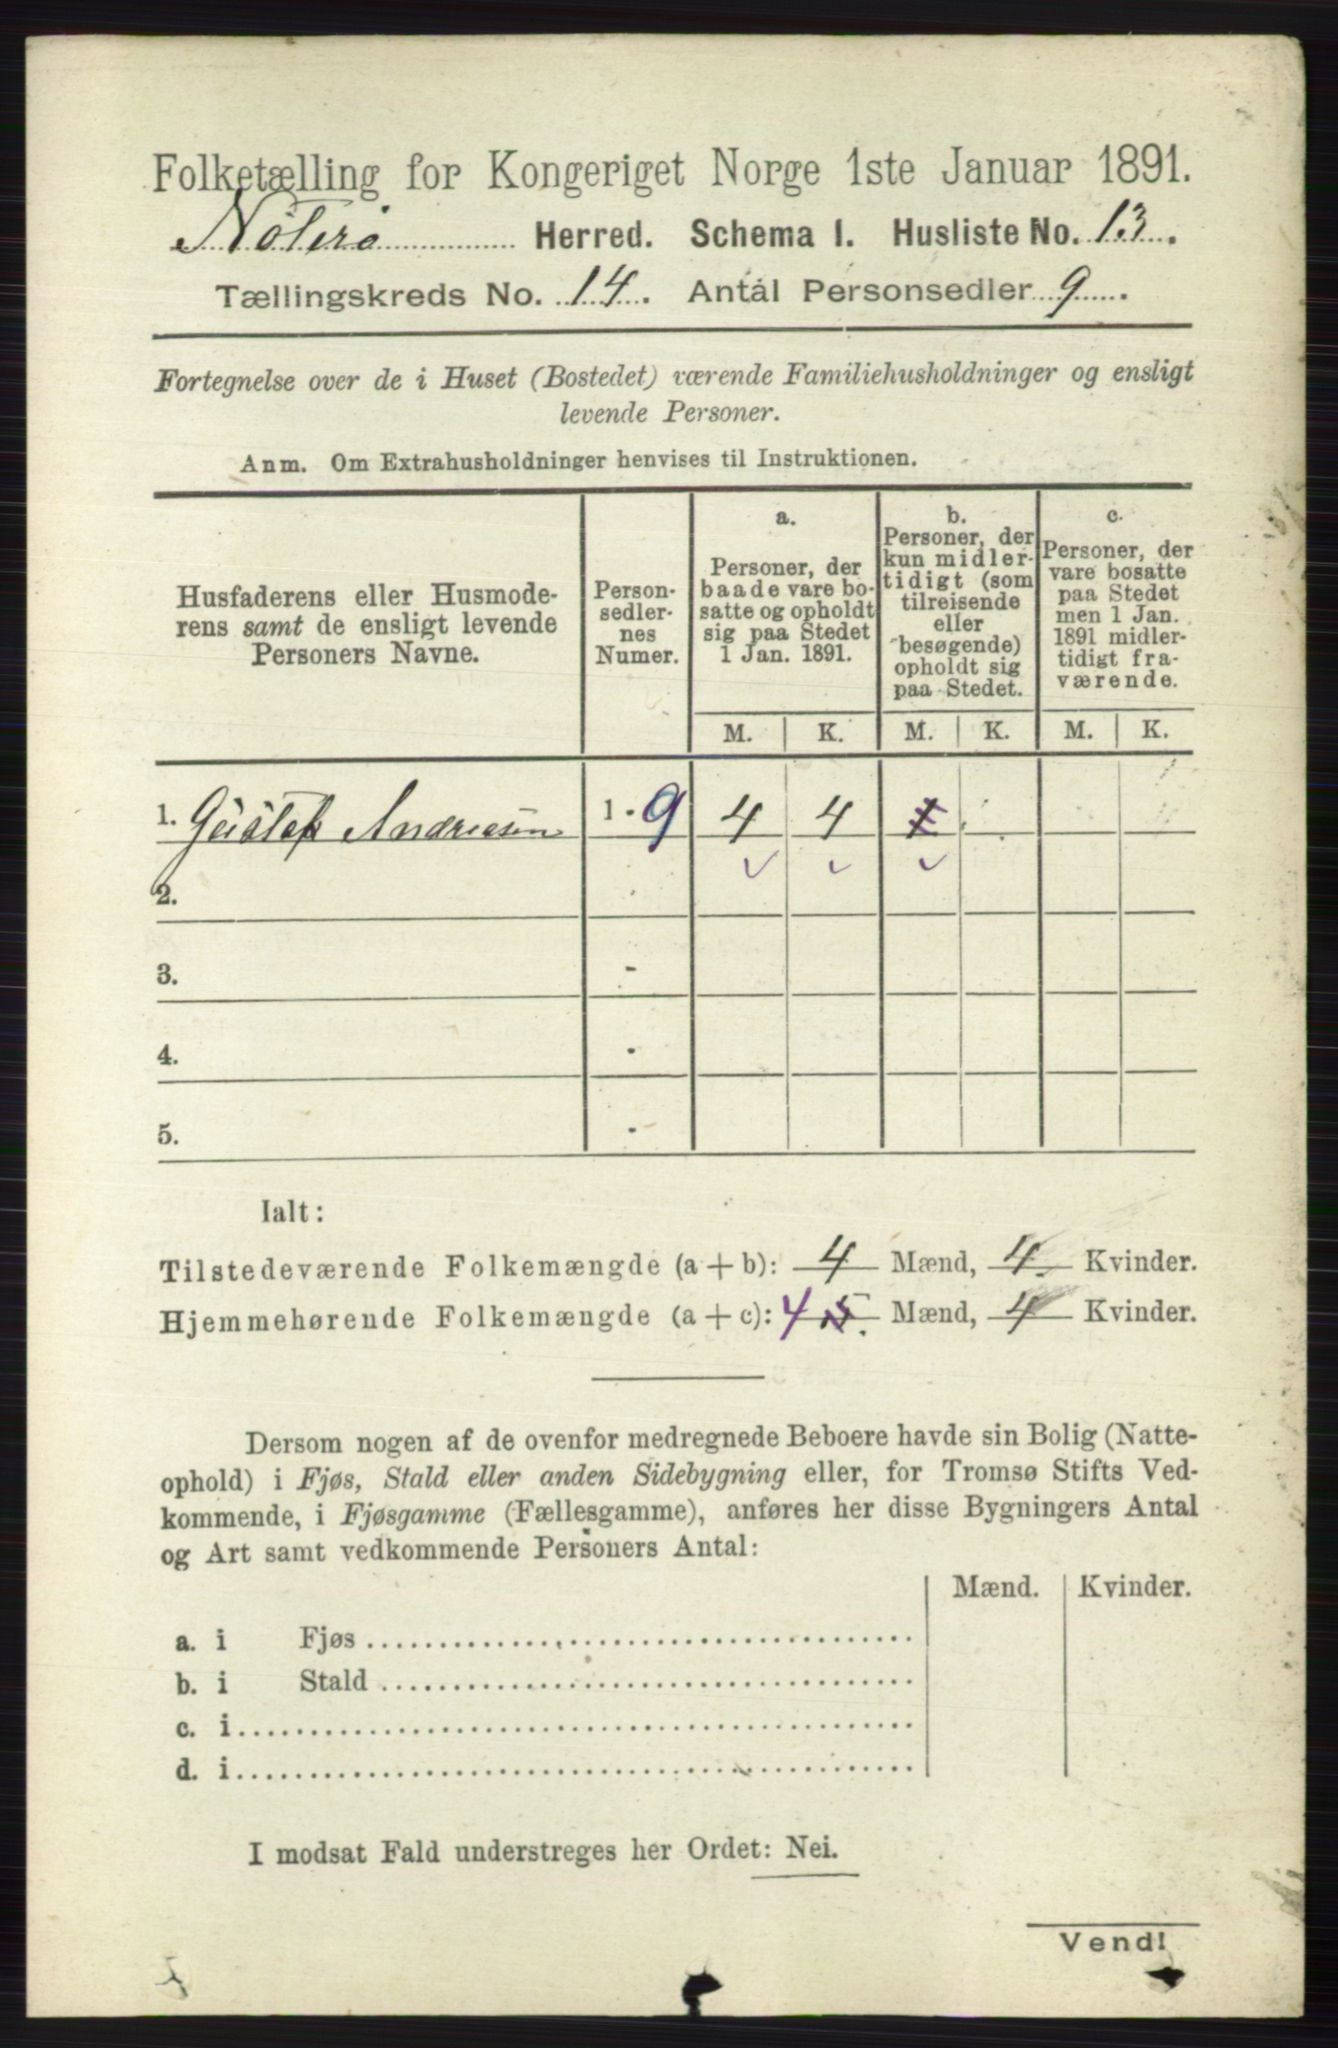 Folketælling for Kongeriget Norge 1ste Januar 1891.
Nöterö Herred. Schema I. Husliste No. 13.
Tællingskreds No. 14. Antal Personsedler 9.
Fortegnelse over de i Huset (Bostedet) værende Familiehusholdninger og ensligt
levende Personer.
Anm. Om Extrahusholdninger henvises til Instruktionen.
Husfaderens eller Husmode-
rens samt de ensligt levende
Personers Navne.
Person-
sedler-
nes
Numer.
a.
Personer, der
baade vare bo-
satte og opholdt
sig paa Stedet
1 Jan. 1891.
b.
Personer, der
kun midler-
tidigt (som
tilreisende
eller
besøgende)
opholdt sig
paa Stedet.
c.
Personer, der
vare bosatte
paa Stedet
men 1 Jan.
1891 midler-
tidigt fra-
værende.
M. K. M. K. M. K.
1. Andriesen 1 - 9 4 4
2.
3. -
4. -
5. -
Ialt:
Tilstedeværende Folkemængde (a + b): 4 Mænd, 4 Kvinder.
Hjemmehørende Folkemængde (a + c): 4 5. Mænd, 4 Kvinder.
Dersom nogen af de ovenfor medregnede Beboere havde sin Bolig (Natte-
ophold) i Fjøs, Stald eller anden Sidebygning eller, for Tromsø Stifts Ved-
kommende, i Fjøsgamme (Fællesgamme), anføres her disse Bygningers Antal
og Art samt vedkommende Personers Antal:
Mænd. Kvinder.
a. i Fjøs
b. i Stald
c. i
d. i
I modsat Fald understreges her Ordet: Nei.
Vend!